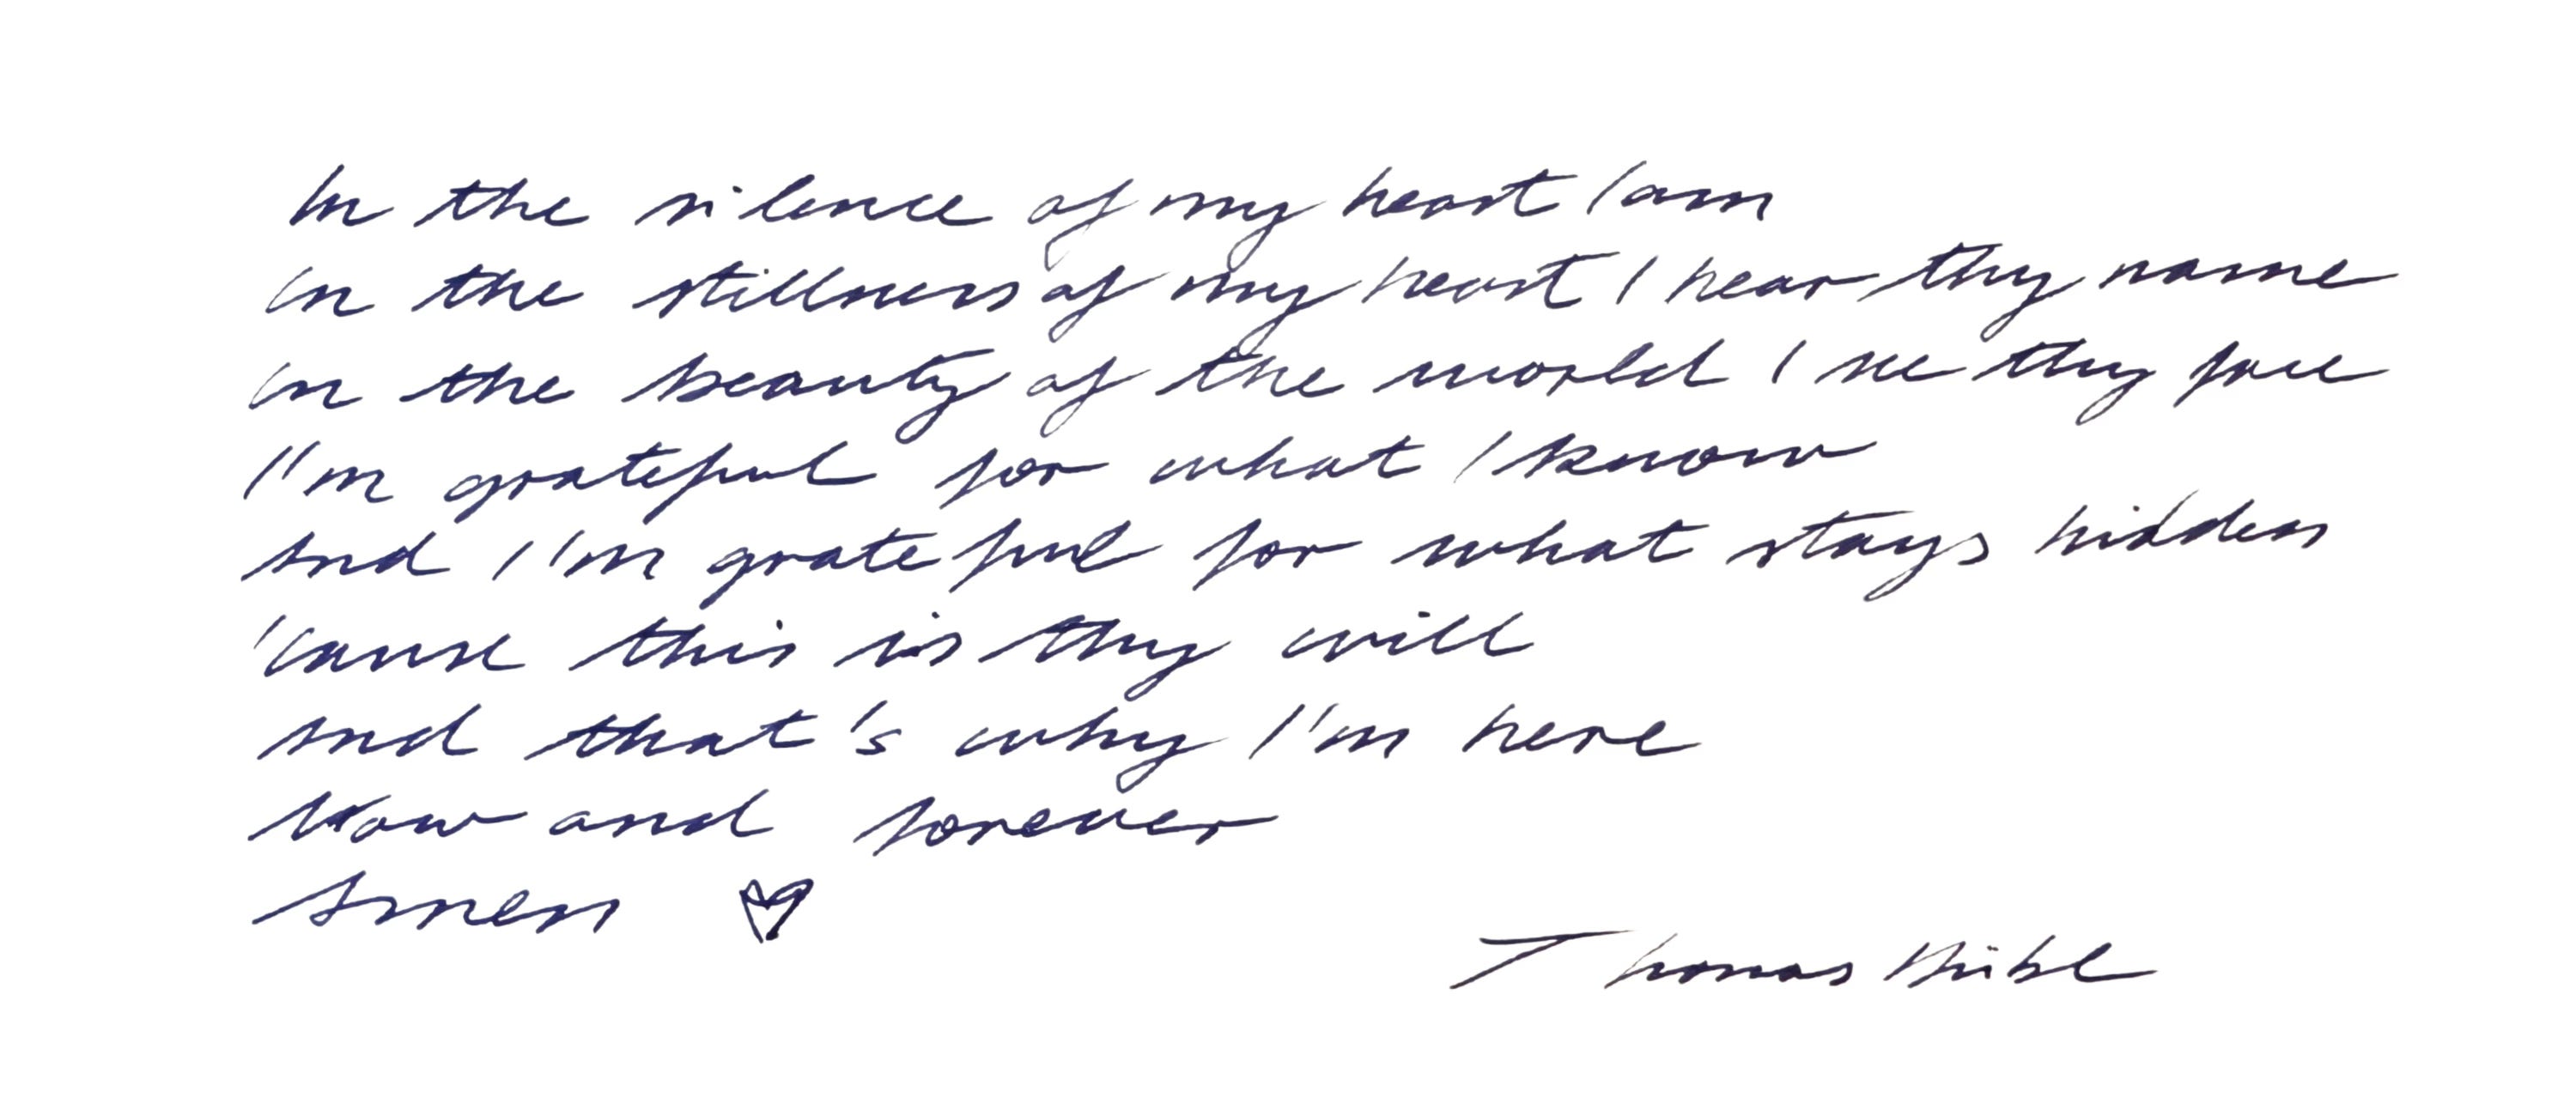 In the silence of my heart I am
in the stillness of my heart I hear thy name
in the beauty of the world I see thy face
I'm grateful for what I know
And I'm grateful for what stays hidden
'cause this is thy will
And that's why I'm here
Now and forever
Amen ♡
Thomas Hübl